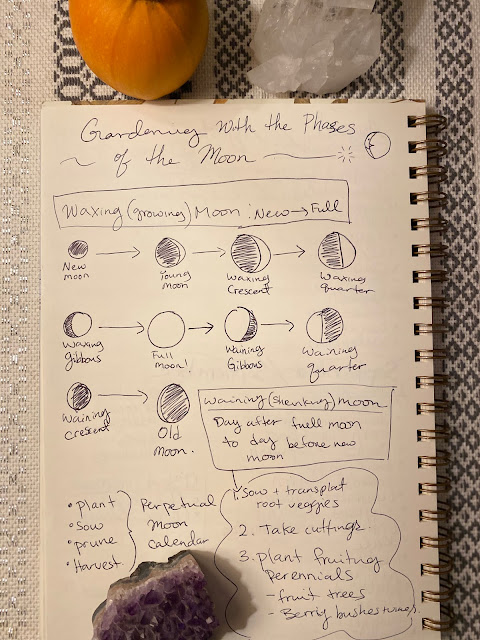 Gardening with the Phases
of the Moon
Waxing (growing) Moon: New → Full
New moon
Young moon
Waxing Crescent
Waxing quarter
Waxing Gibbous
Full Moon!
Waining Gibbous
Waining quarter
Waining crescent
Old Moon.
Waining (shrinking) moon
Day after full moon
to day before new
moon
• Plant
• Sow
• prune
• Harvest
Perpetual
Moon
Calendar
1. Sow + transplat
root veggies
2. Take cuttings.
3. plant fruiting
perennials
- fruit trees
- Berry bushes